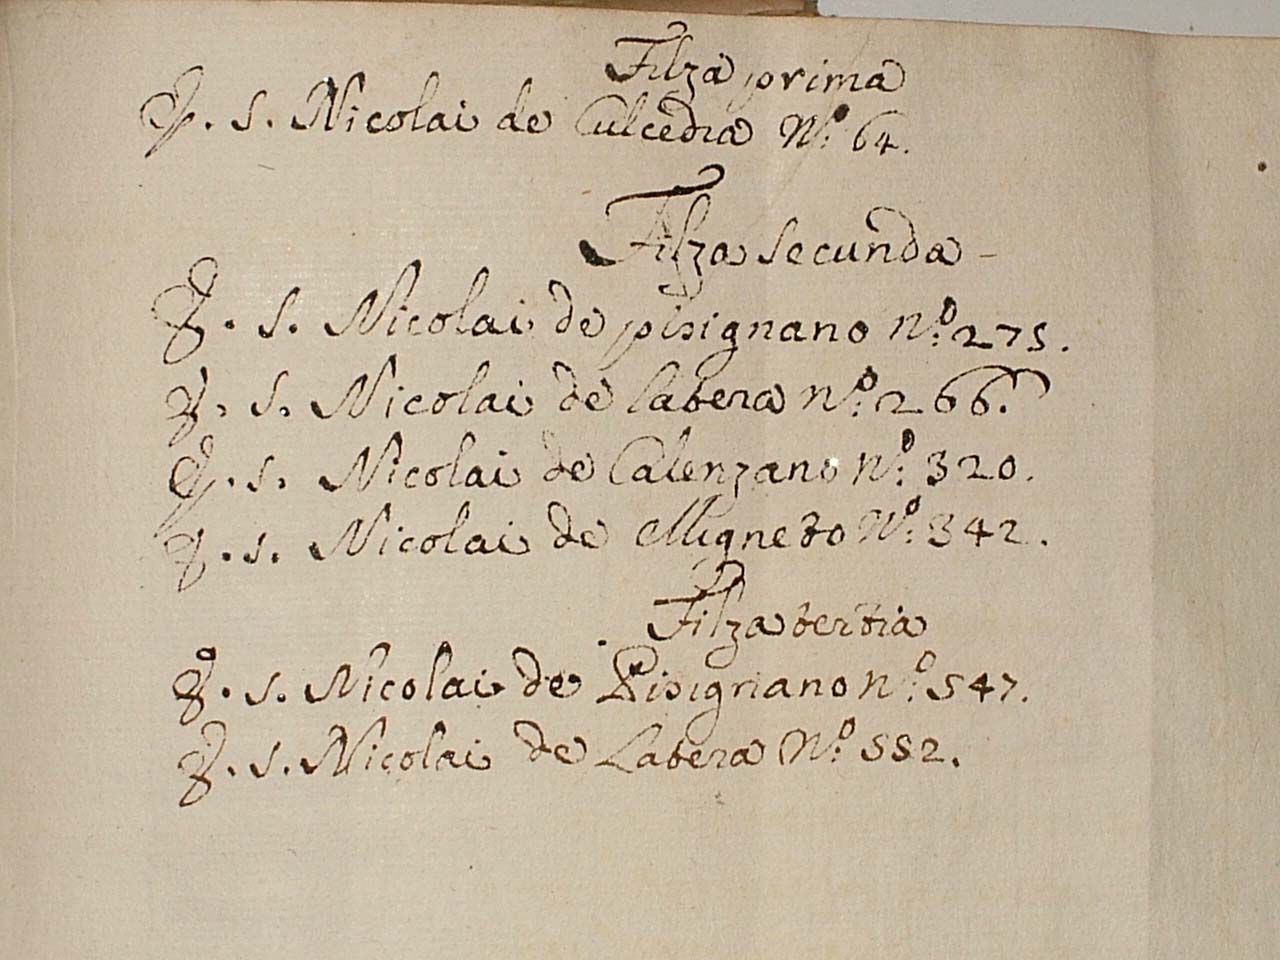 Filza prima
E. s. Nicolai de Culcedra N.º 64.
Filza secunda -
E. s. Nicolai de pisignano n.º 275.
E. s. Nicolai de latera n.º 266.
E. s. Nicolai de Calenzano n.º 320.
E. s. Nicolai de Migneto N.º 342.
Filza tertia
E. s. Nicolai de Pisignano n.º 547.
E. s. Nicolai de Latera N.º 552.